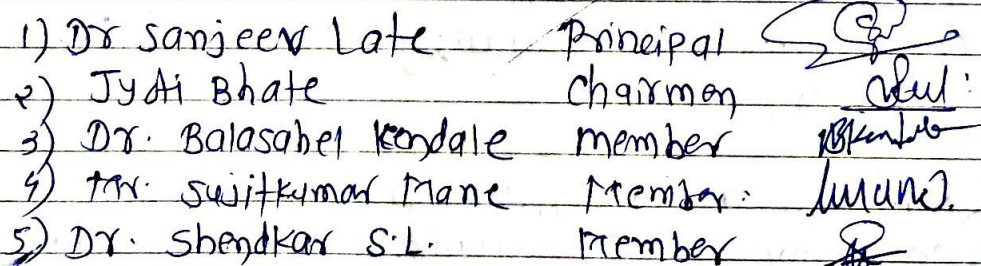 1) Dr Sanjeev Late Principal
2) Jyoti Bhate Chairman
3) Dr. Balasaheb Kendale member
4) Mr. Sujitkumar Mane Member:
5) Dr. Shendkar S.L. Member